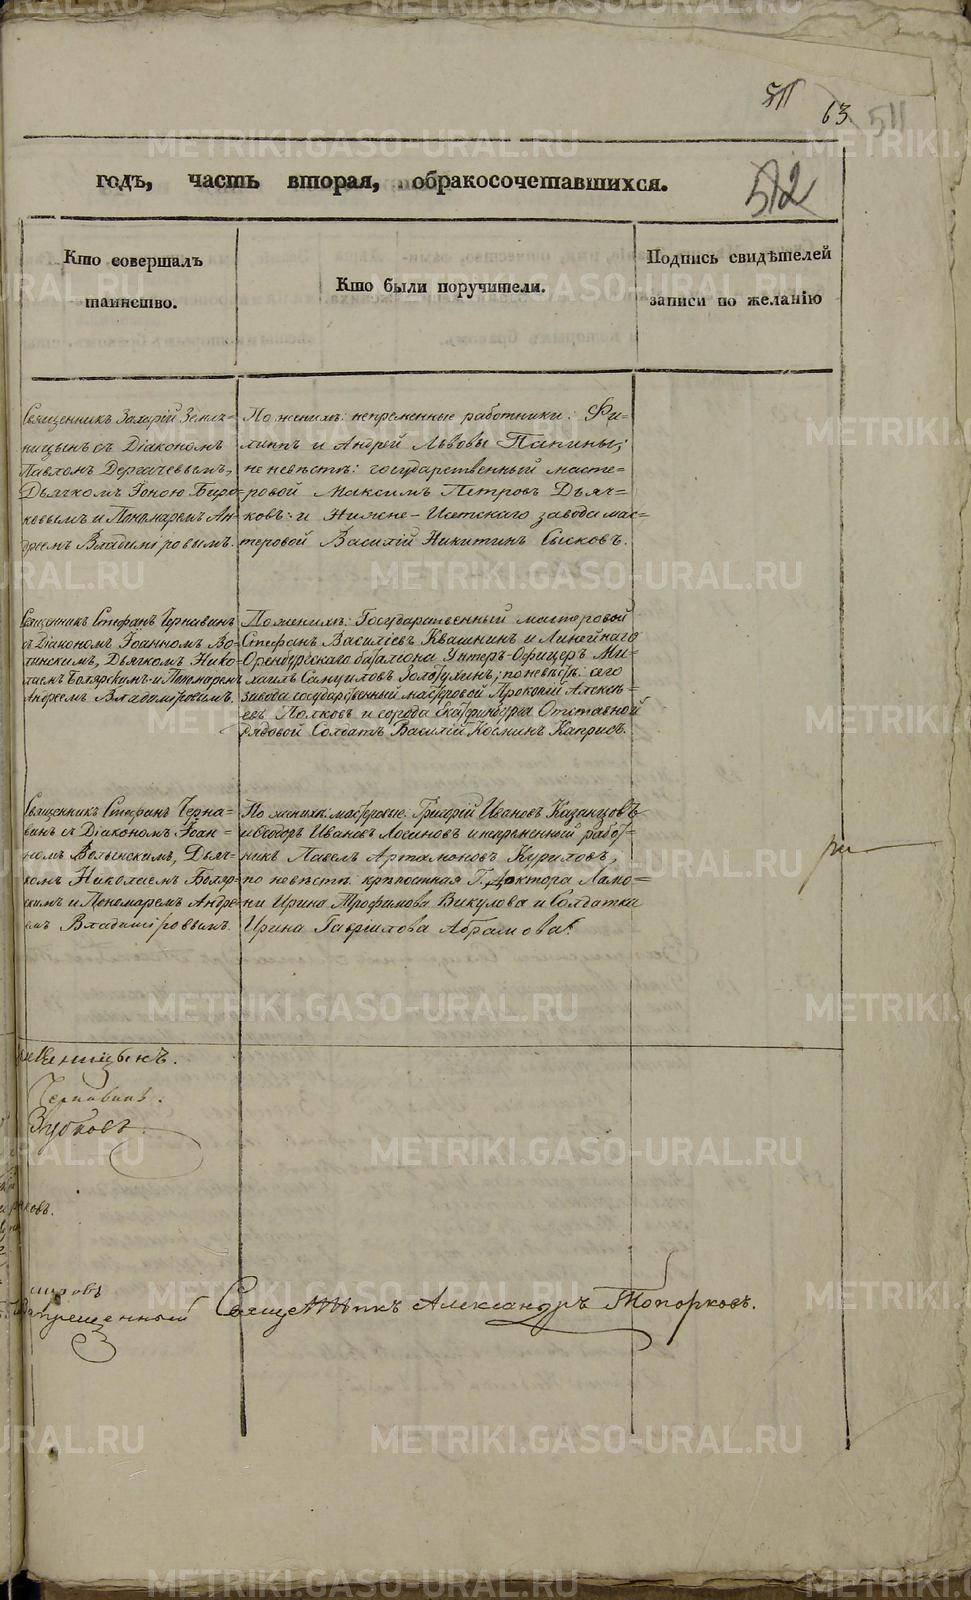 511
63
511
512
годъ, часть вторая, о бракосочетавшихся.
Кто совершалъ
таинство.
Кто были поручители.
Подпись свидѣтелей
записи по желанію
Священникъ Захарій Земля-
ницынъ съ Діакономъ
Павломъ Дергачевымъ,
Дьячкомъ Іоною Биро-
ковымъ и Пономаремъ Ан-
дреемъ Владиміровымъ.
По женихѣ: непременные работники: Фи-
липпъ и Андрей Львовы Папины;
по невѣстѣ: государственный масте-
ровой Максимъ Петровъ Дьяч-
ковъ: и Нижне-Исетскаго завода мас-
теровой Василій Никитинъ Сысковъ.
Священникъ Стефанъ Чернавинъ
съ Діакономъ Іоанномъ Во-
лынскимъ, Дьячкомъ Нико-
лаемъ Боярскимъ и Пономаремъ
Андреемъ Владиміровымъ.
По женихѣ: Государственный мастеровой
Стефанъ Василіевъ Квашнинъ и Линейнаго
Оренбургскаго баталіона Унтеръ-Офицеръ Ми-
хаилъ Самуиловъ Голотухинъ; по невѣстѣ: сего
завода государственный мастеровой Прокопій Алексѣ-
евъ Полковъ и города Екатеринбурга Отставной
рядовой Солдатъ Василій Косминъ Каприсъ.
Священникъ Стефанъ Черна-
винъ съ Діакономъ Іоан-
номъ Волынскимъ, Дьяч-
комъ Николаемъ Бояр-
скимъ и Пономаремъ Андре-
емъ Владиміровымъ.
По женихѣ: мастеровые: Григорій Ивановъ Казанцовъ
и Ѳеодоръ Ивановъ Лосиновъ и непременный работ-
никъ Павелъ Артамоновъ Куриловъ,
по невѣстѣ: крѣпостная Г. Доктора Ламо-
ни Ирина Трофимова Викулова и Солдатка
Ирина Гавріилова Абрамова.
Земляницынъ.
Чернавинъ.
Зубковъ.
ковъ.
мировъ
Священникъ Александръ Топорковъ.